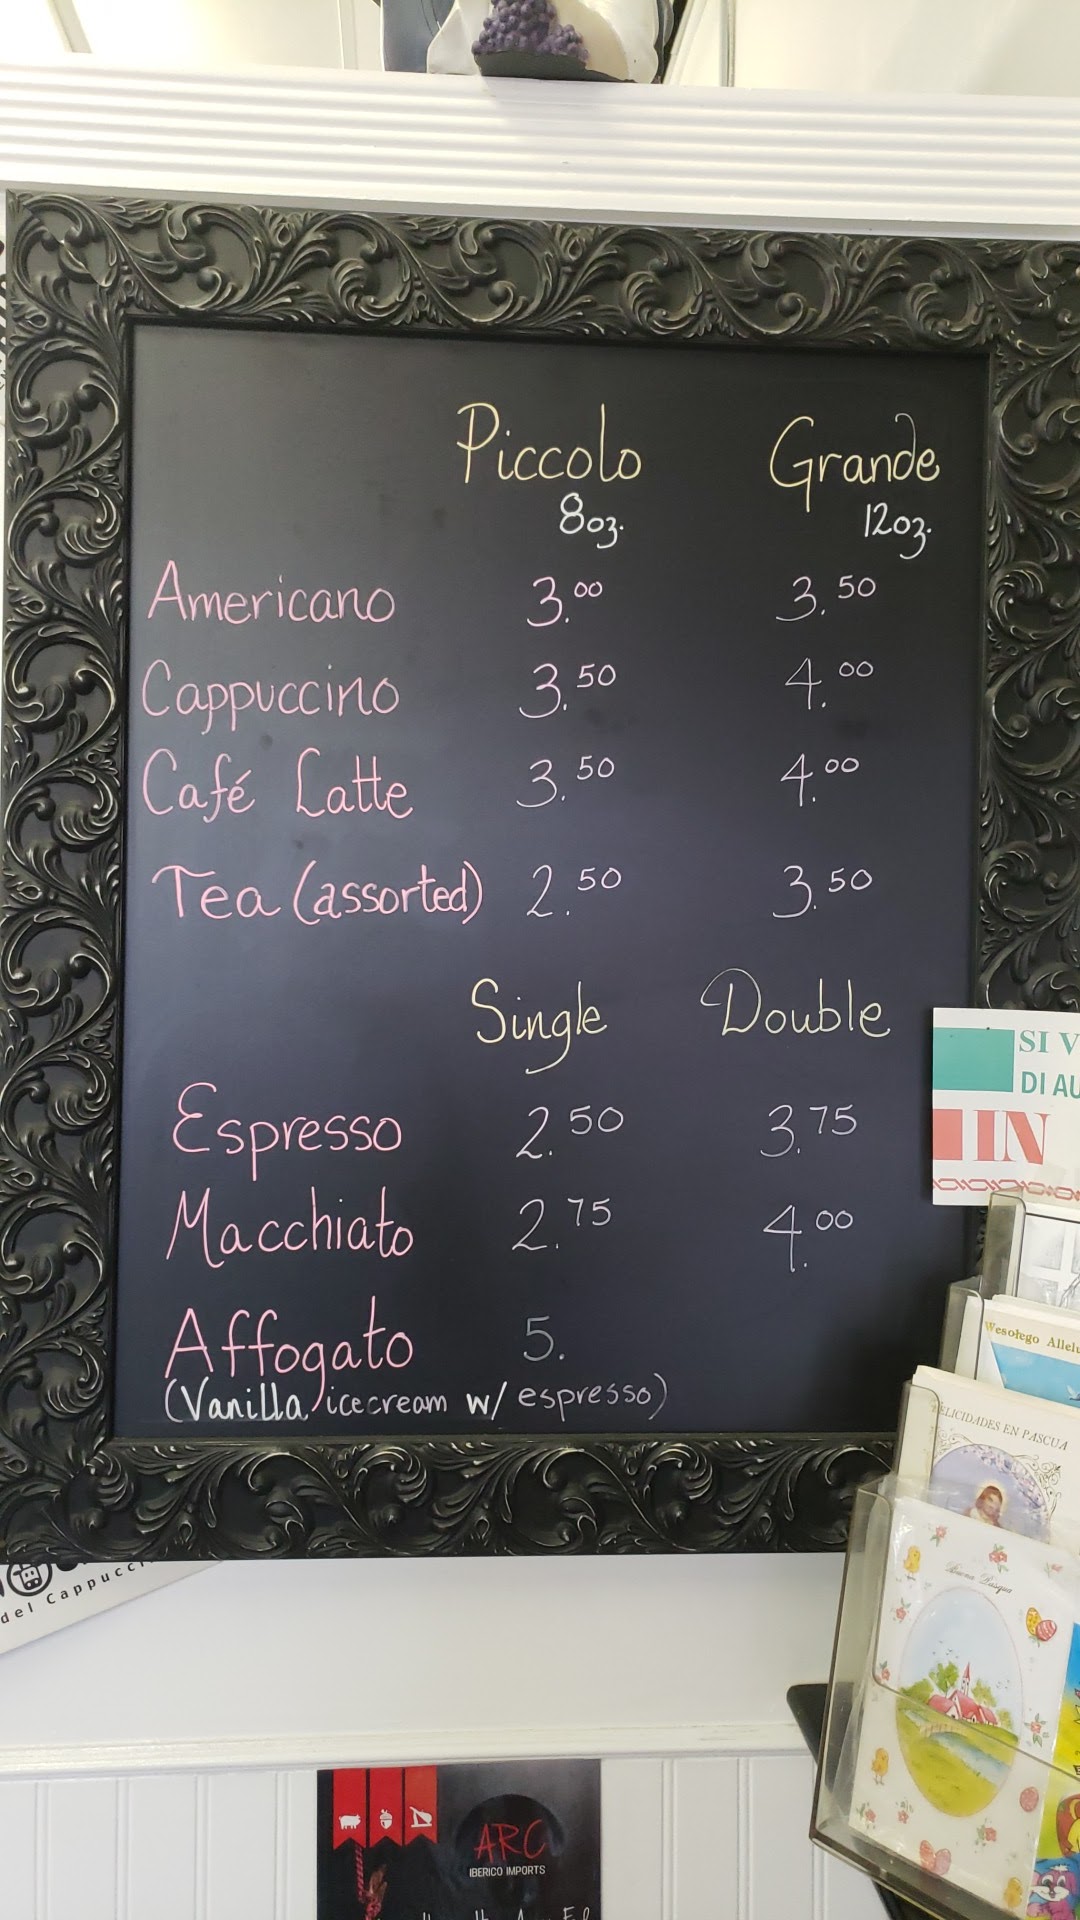 Piccolo Grande
8oz. 12oz.
Americano 3.00 3.50
Cappuccino 3.50 4.00
Café Latte 3.50 4.00
Tea (assorted) 2.50 3.50
Single Double
Espresso 2.50 3.75
Macchiato 2.75 4.00
Affogato 5.
(Vanilla icecream w/ espresso)
SI V
DI AU
IN
Wesołego Allelu
FELICIDADES EN PASCUA
Buona Pasqua
del Cappucci
ARC
IBERICO IMPORTS